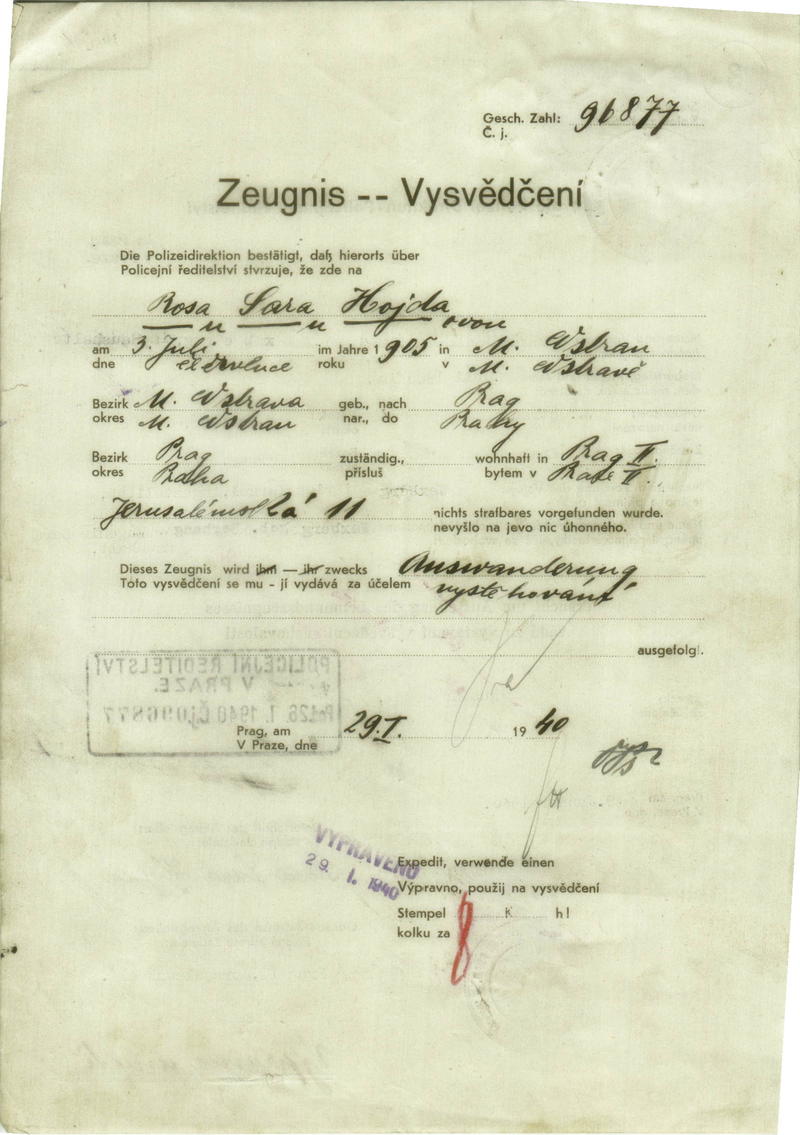 Gesch. Zahl: 96877
Č. j.
Zeugnis -- Vysvědčení
Die Polizeidirektion bestätigt, daß hierorts über
Policejní ředitelství stvrzuje, že zde na
Rosa Sara Hojda
u u ovou
am 3. Juli im Jahre 1905 in M. Ostrau
dne července roku v M. Ostravě
Bezirk M. Ostrava geb., nach Prag
okres M. Ostrau nar., do Prahy
Bezirk Prag zuständig., wohnhaft in Prag II.
okres Praha přísluš bytem v Praze II.
Jerusalémská 11 nichts strafbares vorgefunden wurde.
nevyšlo na jevo nic úhonného.
Dieses Zeugnis wird ihm — ihr zwecks Auswanderung
Toto vysvědčení se mu - jí vydává za účelem vystěhování
ausgefolgt.
POLICEJNÍ ŘEDITELSTVÍ
V PRAZE.
26. 1. 1940 ČJ 096877
Prag, am 29. I. 1940
V Praze, dne
VYPRAVENO
29. I. 1940
Expedit, verwende einen
Výpravno, použij na vysvědčení
Stempel K h!
kolku za 8